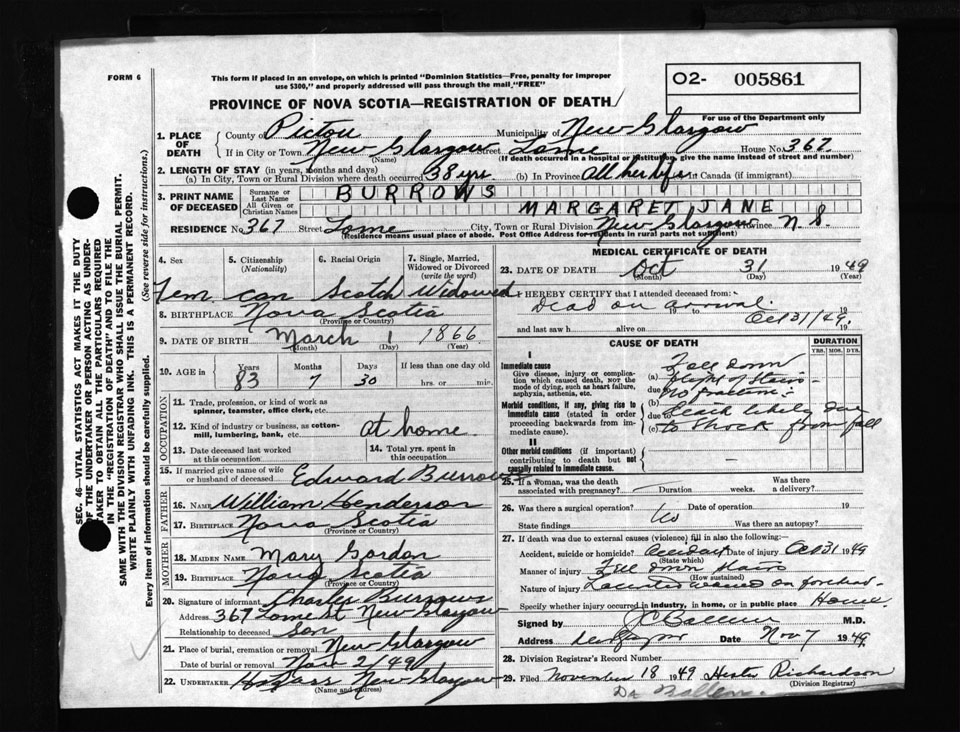 FORM 6
This form if placed in an envelope, on which is printed "Dominion Statistics—Free, penalty for improper
use $300," and properly addressed will pass through the mail, "FREE"
O2- 005861
For use of the Department only
PROVINCE OF NOVA SCOTIA—REGISTRATION OF DEATH
1. PLACE OF DEATH
County of Pictou Municipality of New Glasgow
If in City or Town New Glasgow Street Lorne House No. 367
(Name) (If death occurred in a hospital or institution, give the name instead of street and number)
2. LENGTH OF STAY (in years, months and days)
(a) In City, Town or Rural Division where death occurred 38 yrs. (b) In Province All her life in Canada (if immigrant)
3. PRINT NAME OF DECEASED
Surname or Last Name BURROWS
All Given or Christian Names MARGARET JANE
RESIDENCE No. 367 Street Lorne City, Town or Rural Division New Glasgow Province N. S.
(Residence means usual place of abode. Post Office Address for residents in rural parts not sufficient)
4. Sex
5. Citizenship (Nationality)
6. Racial Origin
7. Single, Married, Widowed or Divorced (write the word)
Fem can Scotch Widowed
8. BIRTHPLACE Nova Scotia
(Province or Country)
9. DATE OF BIRTH March 1 1866
(Month) (Day) (Year)
10. AGE in Years Months Days If less than one day old
83 7 30 hrs. or min.
OCCUPATION
11. Trade, profession, or kind of work as
spinner, teamster, office clerk, etc.
12. Kind of industry or business, as cotton-
mill, lumbering, bank, etc. at home
13. Date deceased last worked at this occupation
14. Total yrs. spent in this occupation
15. If married give name of wife
or husband of deceased Edward Burrows
FATHER
16. NAME William Henderson
17. BIRTHPLACE Nova Scotia
(Province or Country)
MOTHER
18. MAIDEN NAME Mary Gordon
19. BIRTHPLACE Nova Scotia
(Province or Country)
20. Signature of informant Charles Burrows
Address 367 Lorne St New Glasgow
Relationship to deceased Son
21. Place of burial, cremation or removal New Glasgow
Date of burial or removal Nov 2/49
22. UNDERTAKER New Glasgow
(Name and address)
MEDICAL CERTIFICATE OF DEATH
23. DATE OF DEATH Oct 31 1949
(Month) (Day) (Year)
I HEREBY CERTIFY that I attended deceased from:
Dead on arrival.
19 to 19
and last saw h alive on Oct 31/49. 19
CAUSE OF DEATH
DURATION
YRS. MOS. DYS.
I
Immediate cause
Give disease, injury or complica-
tion which caused death, NOT the
mode of dying, such as heart failure,
asphyxia, asthenia, etc.
(a) Fall down
due to flight of stairs -
no fracture -
Morbid conditions, if any, giving rise to
immediate cause (stated in order
proceeding backwards from im-
mediate cause).
(b) Death likely due
due to
(c) to shock from fall
II
Other morbid conditions (if important)
contributing to death but not
causally related to immediate cause.
25. If a woman, was the death
associated with pregnancy? Duration weeks. Was there a delivery?
26. Was there a surgical operation? No Date of operation 19
State findings Was there an autopsy?
27. If death was due to external causes (violence) fill in also the following:—
Accident, suicide or homicide? Accident Date of injury Oct 31 1949
(State which)
Manner of injury Fell down stairs
(How sustained)
Nature of injury Lacerated wound on forehead.
Specify whether injury occurred in industry, in home, or in public place Home
Signed by M.D.
Address Date Nov 7 1949.
28. Division Registrar's Record Number
29. Filed November 18 1949 Hester Richardson
(Division Registrar)
SEC. 46—VITAL STATISTICS ACT MAKES IT THE DUTY
OF THE UNDERTAKER OR PERSON ACTING AS UNDER-
TAKER TO OBTAIN ALL THE PARTICULARS REQUIRED
IN THE "REGISTRATION OF DEATH" AND TO FILE THE
SAME WITH THE DIVISION REGISTRAR WHO SHALL ISSUE THE BURIAL PERMIT.
WRITE PLAINLY WITH UNFADING INK. THIS IS A PERMANENT RECORD.
Every item of information should be carefully supplied. (See reverse side for instructions.)